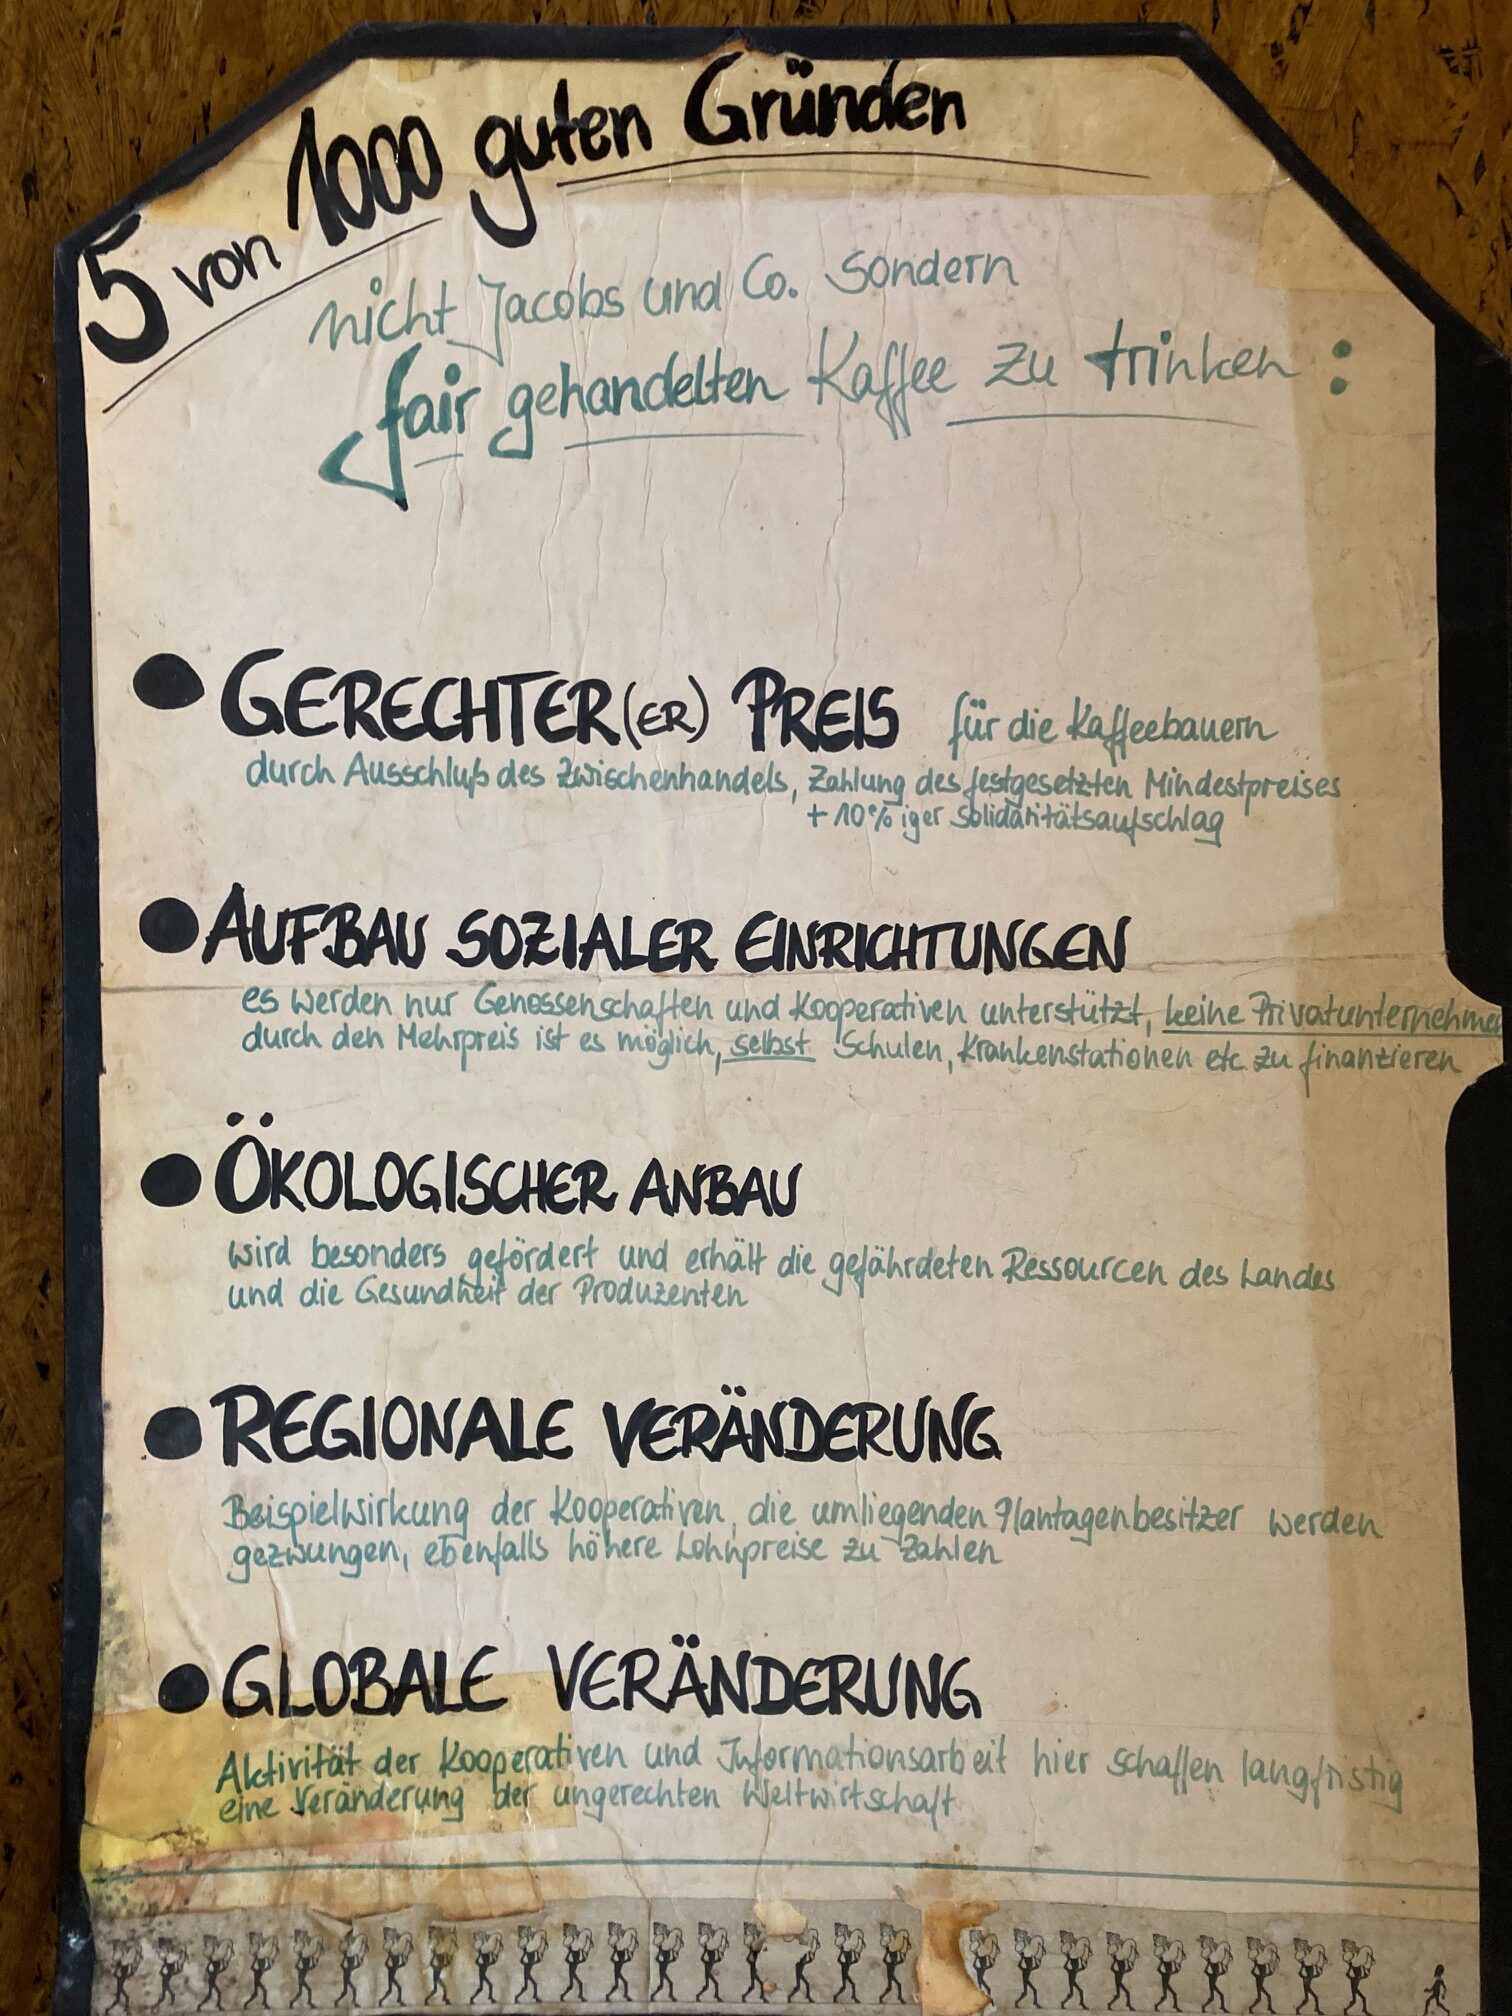 5 von 1000 guten Gründen
nicht Jacobs und Co. sondern
fair gehandelten Kaffee zu trinken :
● GERECHTER(ER) PREIS für die Kaffeebauern
durch Ausschluß des Zwischenhandels, Zahlung des festgesetzten Mindestpreises
+ 10%iger Solidaritätsaufschlag
● AUFBAU SOZIALER EINRICHTUNGEN
es werden nur Genossenschaften und Kooperativen unterstützt, keine Privatunternehmen
durch den Mehrpreis ist es möglich, selbst Schulen, Krankenstationen etc. zu finanzieren
● ÖKOLOGISCHER ANBAU
wird besonders gefördert und erhält die gefährdeten Ressourcen des Landes
und die Gesundheit der Produzenten
● REGIONALE VERÄNDERUNG
Beispielwirkung der Kooperativen, die umliegenden Plantagenbesitzer werden
gezwungen, ebenfalls höhere Lohnpreise zu zahlen
● GLOBALE VERÄNDERUNG
Aktivität der Kooperativen und Informationsarbeit hier schaffen langfristig
eine Veränderung der ungerechten Weltwirtschaft